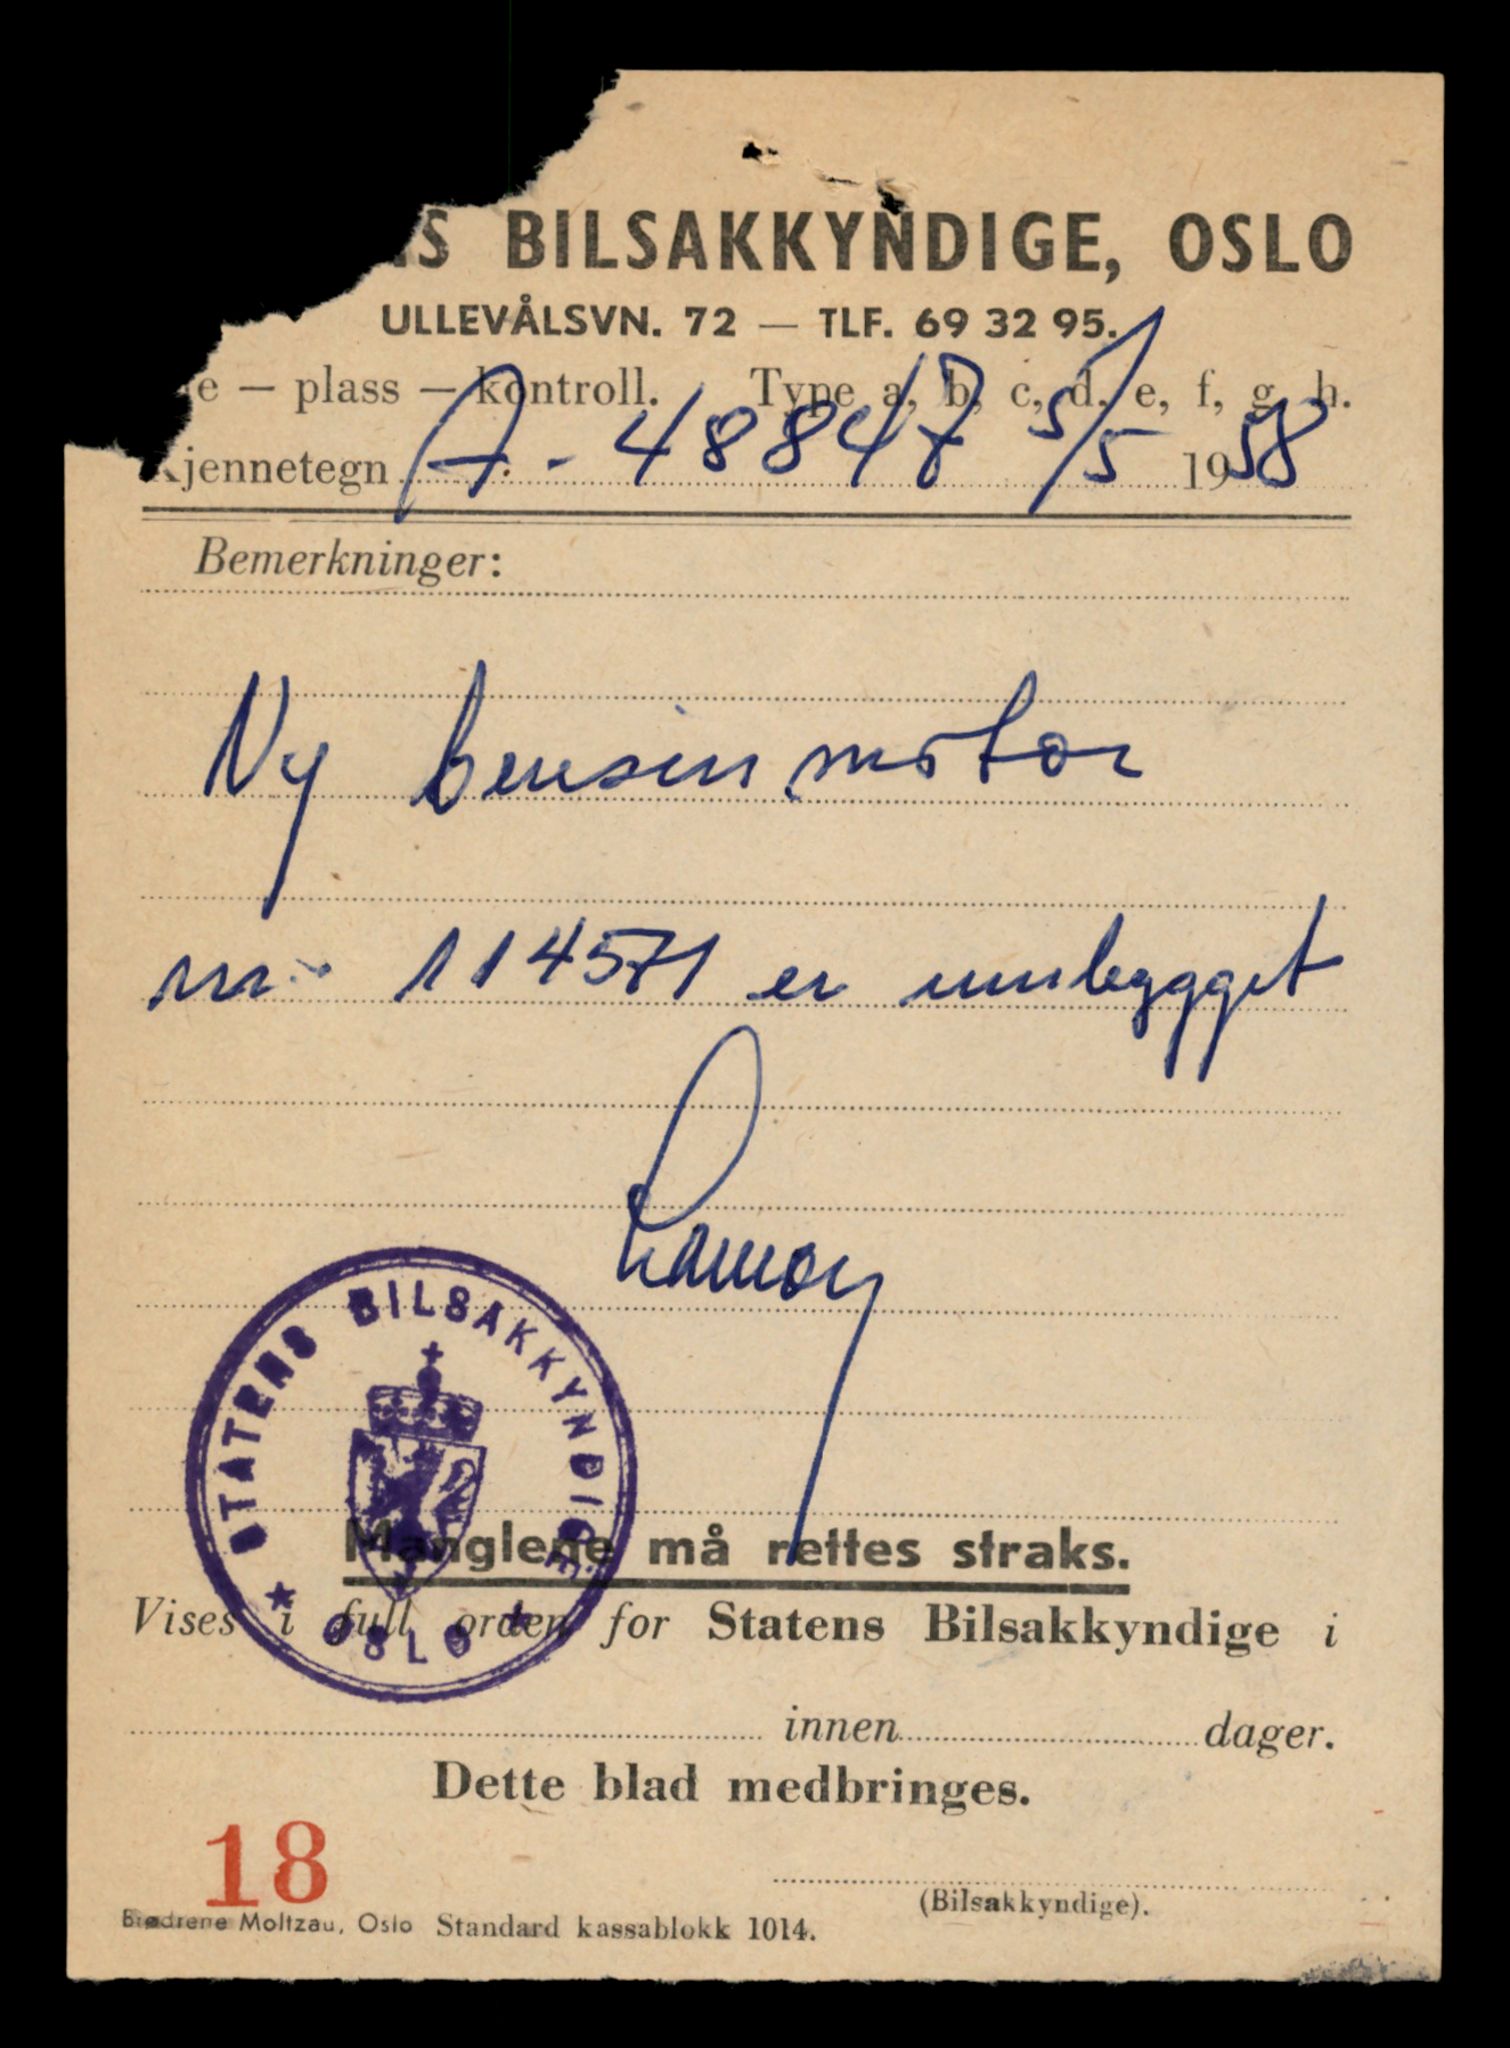 S BILSAKKYNDIGE, OSLO
ULLEVÅLSVN. 72 — TLF. 69 32 95.
e — plass — kontroll. Type a, b, c, d, e, f, g, h.
Kjennetegn A.-48847 5/5 1958
Bemerkninger:
Ny bensinmotor
nr. 114571 er innbygget
STATENS BILSAKKYNDIGE
* OSLO *
Manglene må rettes straks.
Vises i full orden for Statens Bilsakkyndige i
innen dager.
Dette blad medbringes.
18
(Bilsakkyndige).
Brødrene Moltzau, Oslo Standard kassablokk 1014.